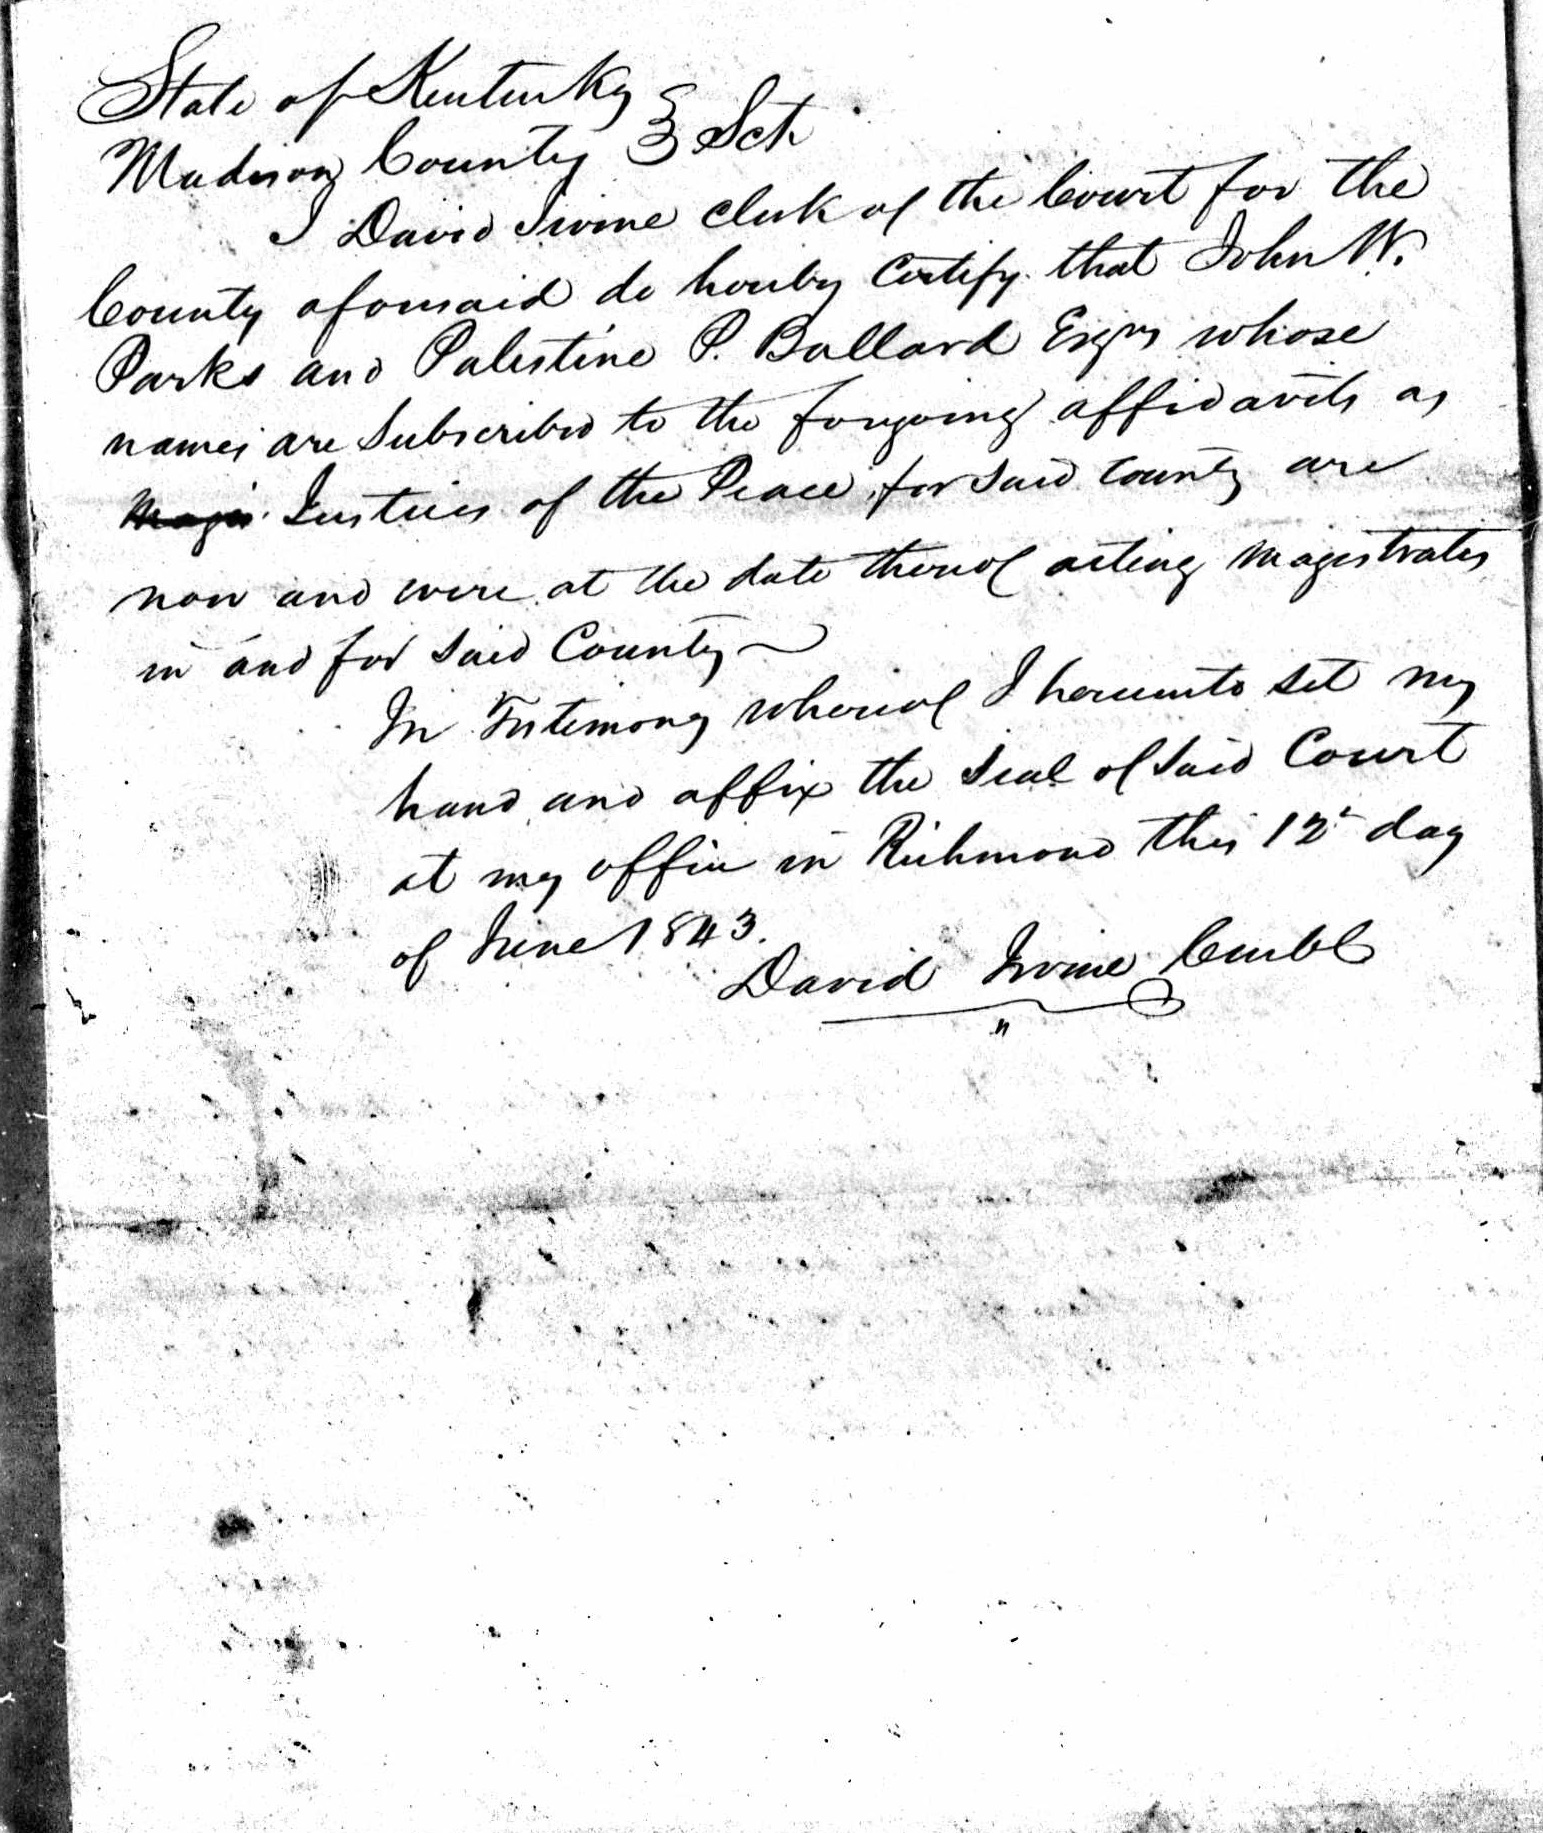 State of Kentucky } Sct
Madison County }
I David Irvine clerk of the Court for the
County aforesaid do hereby certify that John W.
Parks and Palestine P. Ballard Esqrs whose
names are subscribed to the foregoing affidavits as
Magis Justices of the Peace for said county are
now and were at the date thereof acting magistrates
in and for said County
In Testimony whereof I hereunto set my
hand and affix the seal of said Court
at my office in Richmond this 12th day
of June 1843.
David Irvine